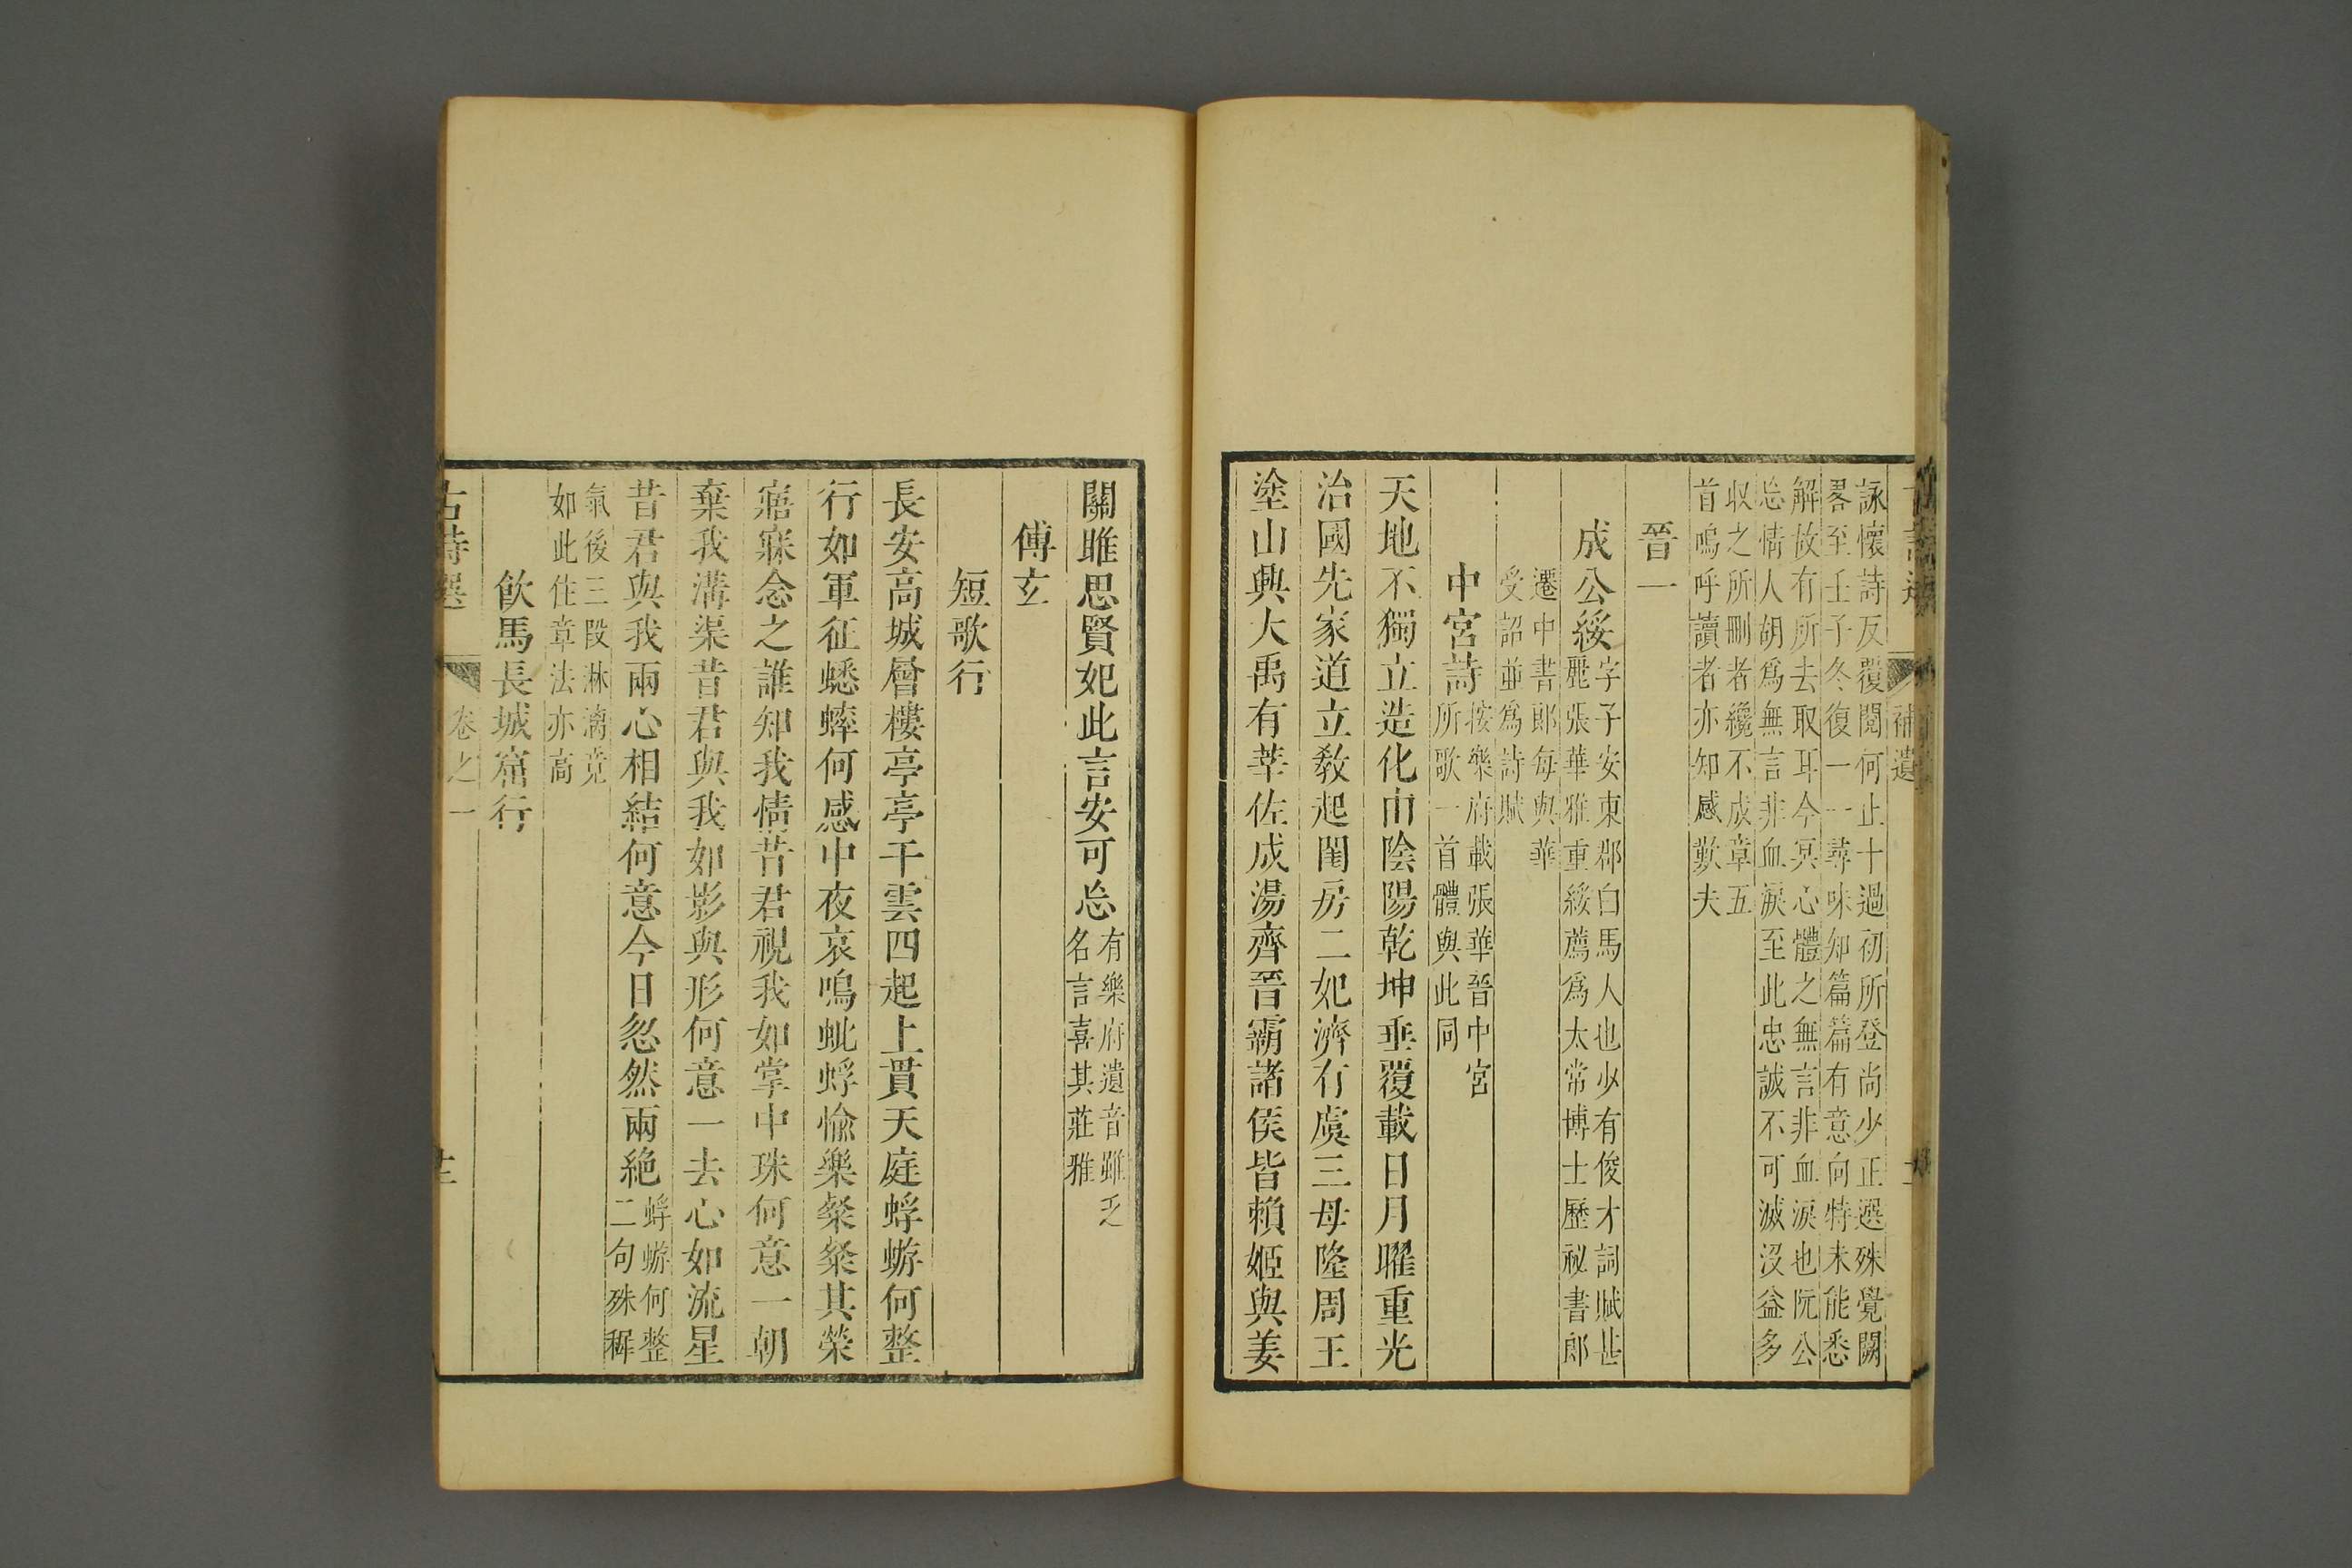 補遺
詠懷詩反覆閱何止十過初所登尚少正選殊覺闕
畧至壬子冬復一一尋味知篇篇有意向特未能悉
解故有所去取耳今冥心體之無言非血淚也阮公
忘情人胡爲無言非血淚至此忠誠不可滅沒益多
収之所刪者纔不成章五
首嗚呼讀者亦知感歎夫
晉一
成公綏
字子安東郡白馬人也少有俊才詞賦甚
麗張華雅重綏薦爲太常博士歷祕書郎
遷中書郎每與華
受詔並爲詩賦
中宮詩
按樂府載張華晉中宮
所歌一首體與此同
天地不獨立造化由陰陽乾坤垂覆載日月曜重光
治國先家道立教起閨房二妃濟有虞三母隆周王
塗山興大禹有莘佐成湯齊晉霸諸侯皆賴姬與姜
關雎思賢妃此言安可忘
有樂府遺音雖乏
名言喜其莊雅
傅玄
短歌行
長安高城層樓亭亭干雲四起上貫天庭蜉蝣何整
行如軍征蟋蟀何感中夜哀鳴蚍蜉愉樂粲粲其榮
寤寐念之誰知我情昔君視我如掌中珠何意一朝
棄我溝渠昔君與我如影與形何意一去心如流星
昔君與我兩心相結何意今日忽然兩絶
蜉蝣何整
二句殊稺
氣後三段淋漓竟
如此住章法亦高
飮馬長城窟行
古詩選
卷之一